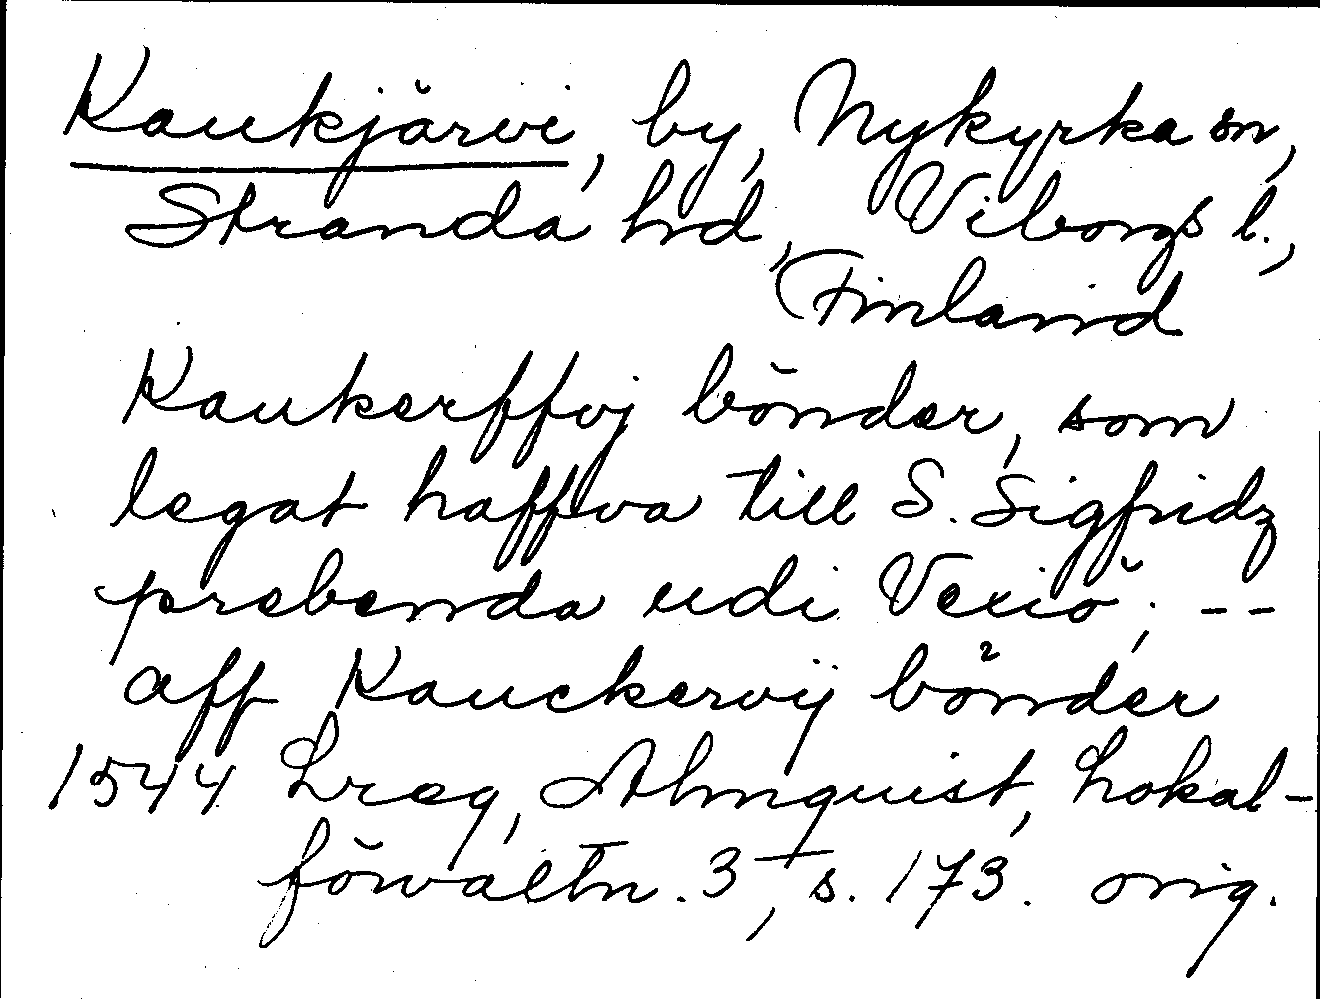 Kaukjärvi, by, Nykyrka sn,
Stranda hd, Viborgs l.,
Finland
Kaukerffvj bönder, som
legat haffva till S. Sigfridz
prebenda udi Vexiö; --
aff Kauckervij bönder
1544 Lreg, Almquist, Lokal-
förvaltn. 3, s. 173. orig.